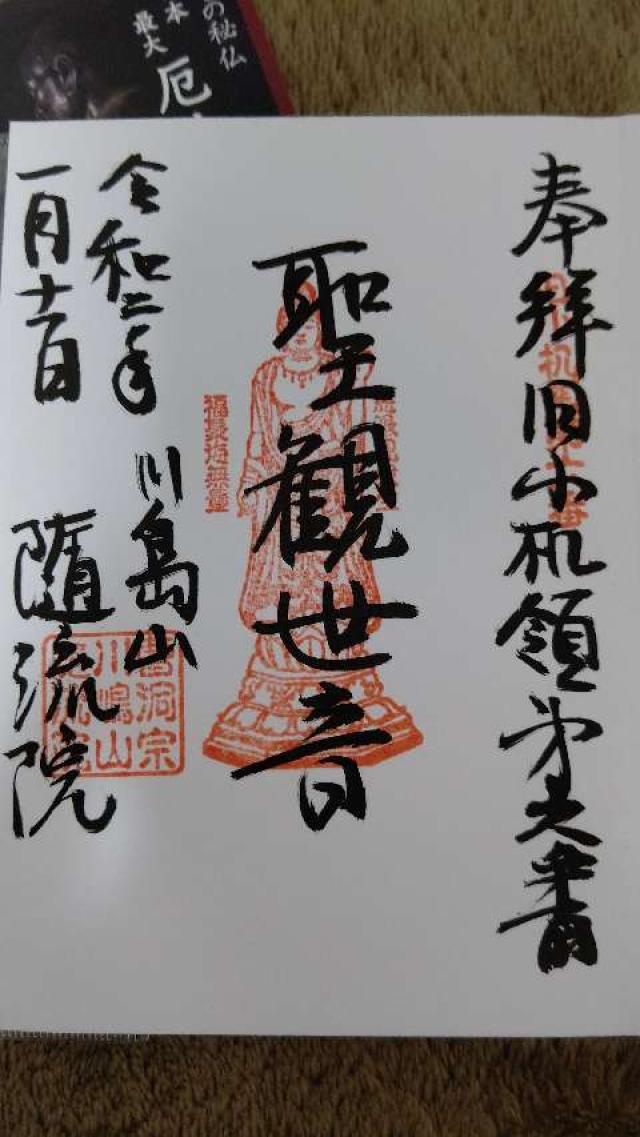 奉拝 旧小机領第七番
聖観世音
福聚海無量
令和二年
一月十一日
川島山
随流院
曹洞宗
川嶋山
の秘仏
本
最大
厄